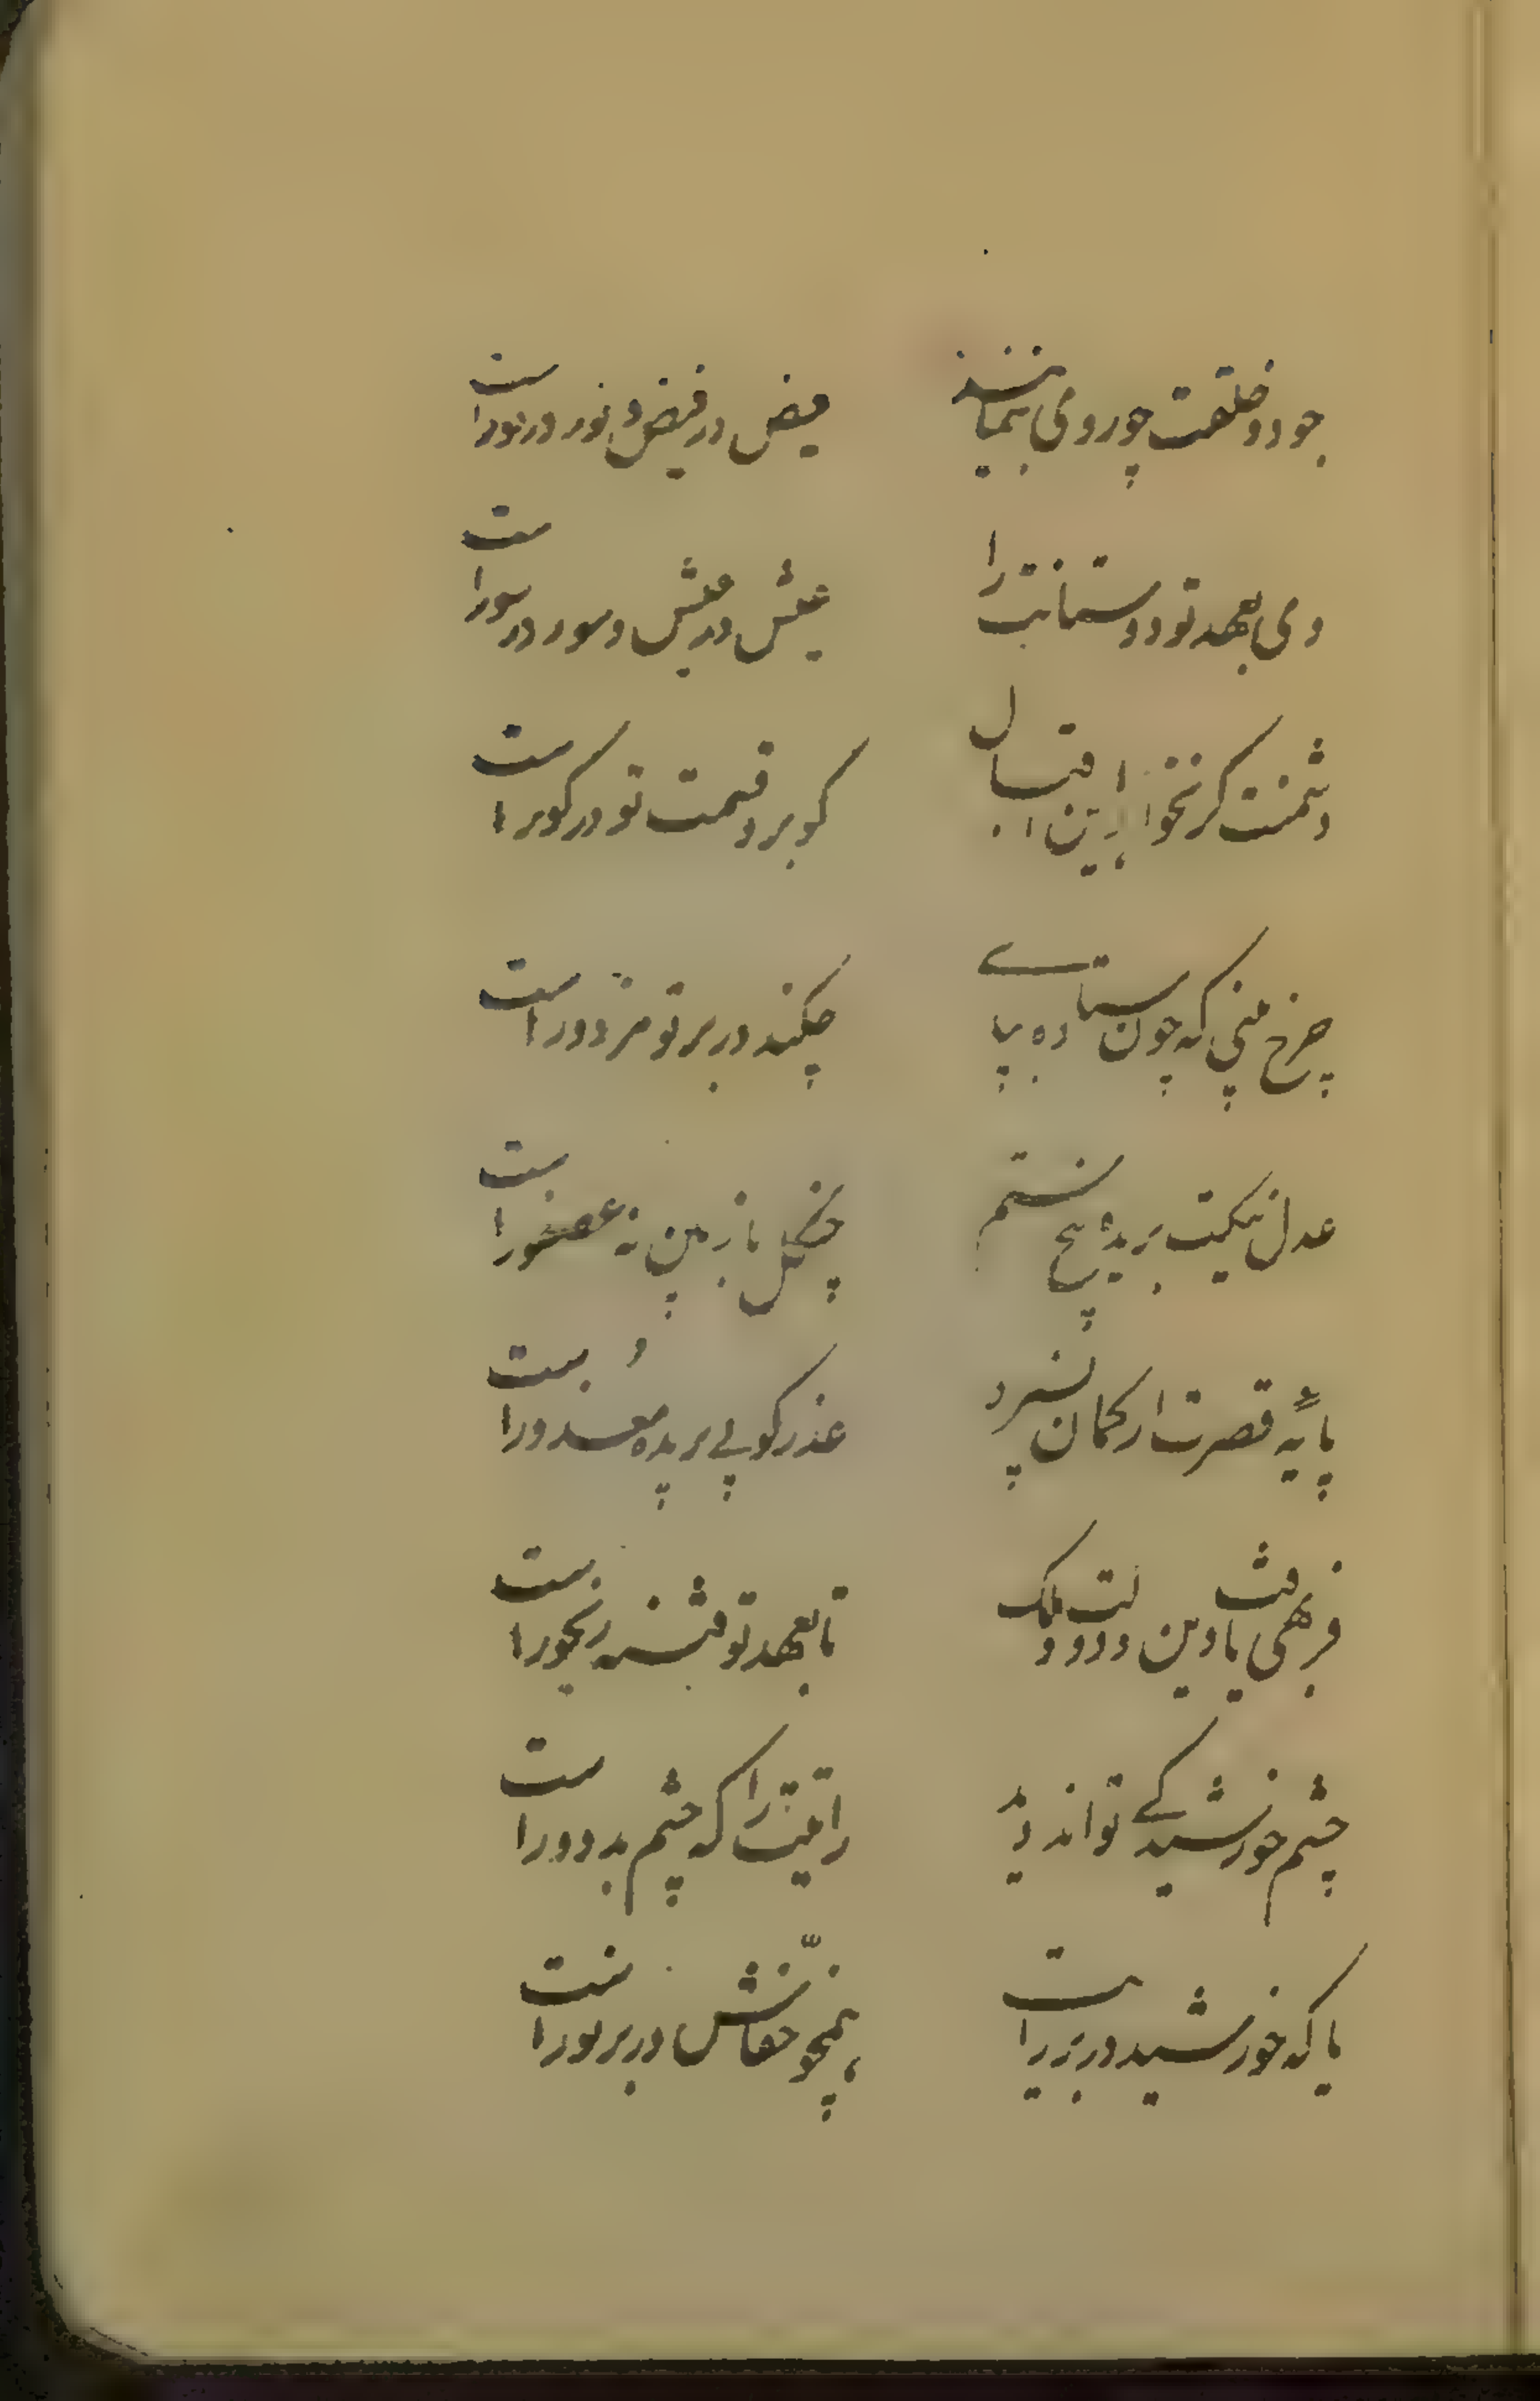 جود و خلقت چو روی بنمایند فیض در فیض و نور در نور است
وی بعهد تو دوستانت را عیش در عیش و سور در سور است
دشمنت گر نخواهد این اقبال گو بر دقیمت تو در گور است
چرخ منی که چون ستاده بپای چکند در بر تو مزدور است
عدل نیکت بریده پنج ستم چنگل باز بین نه عصفور است
پایهٔ قصرت ار گمان نبرد عذر گو پی بریده معذور است
فربهی یافت دین و دولت و ملک تا بعهد تو فتنه رنجور است
چشم خورشید کی تواند دید رایتت را که چشم بد دور است
یا که خورشید در بر رایت همچو خفاش در بر نور است